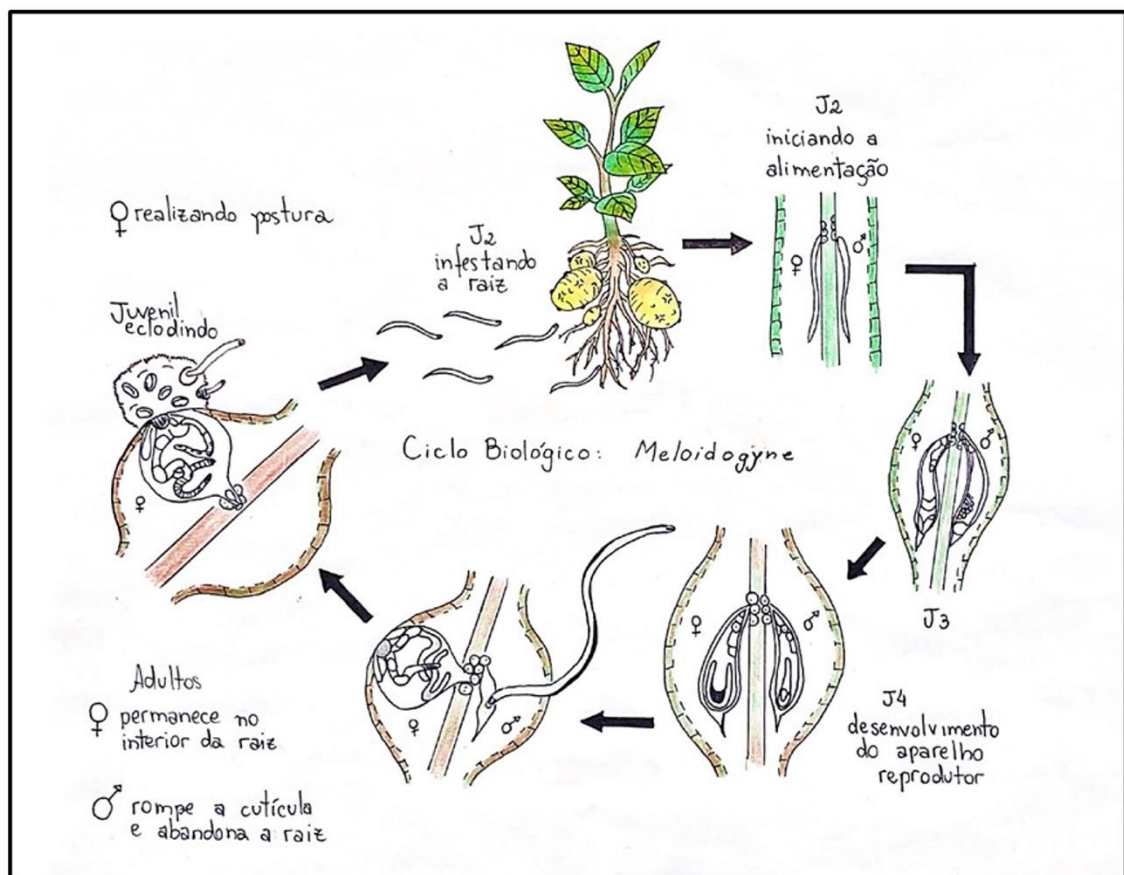 ♀ realizando postura
Juvenil
eclodindo
J2
infestando
a raiz
J2
iniciando a
alimentação
♀
♂
♀
♂
J3
Ciclo Biológico: Meloidogyne
♀
♂
J4
desenvolvimento
do aparelho
reprodutor
♀
♂
♀
Adultos
♀ permanece no
interior da raiz
♂ rompe a cutícula
e abandona a raiz